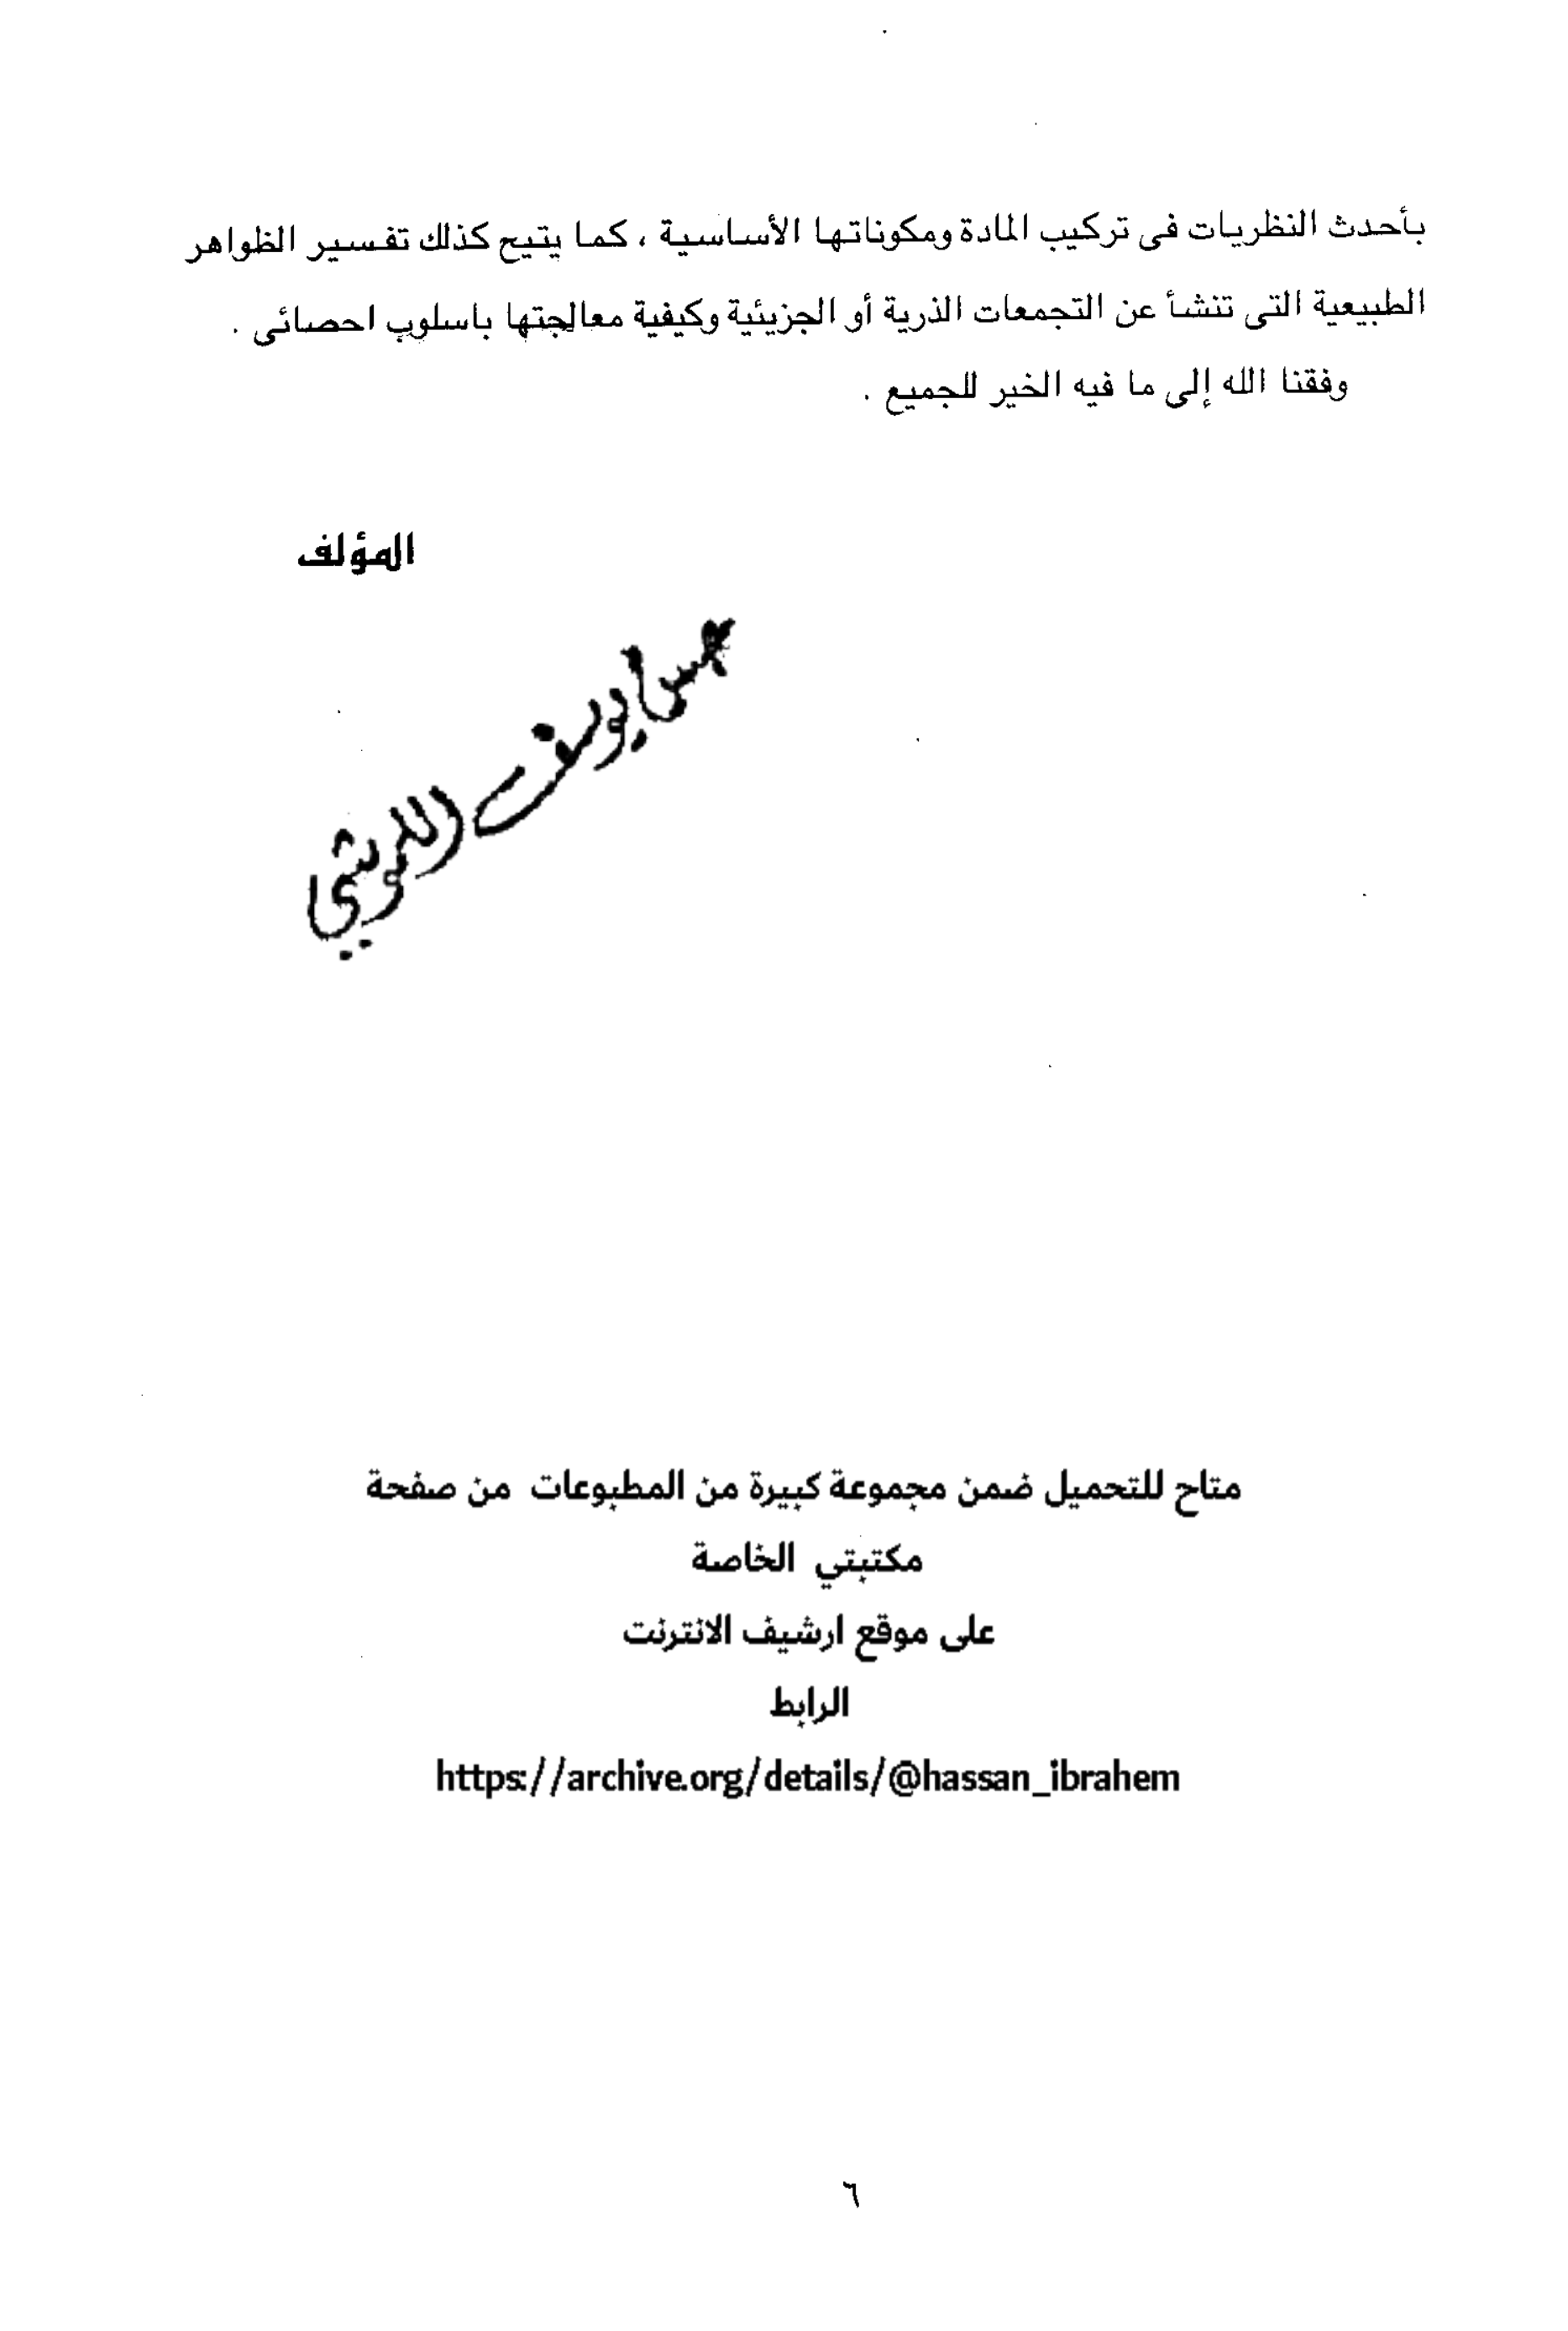 بأحدث النظريات فى تركيب المادة ومكوناتها الأساسية ، كما يتيح كذلك تفسير الظواهر
الطبيعية التى تنشأ عن التجمعات الذرية أو الجزيئية وكيفية معالجتها باسلوب احصائى .
وفقنا الله إلى ما فيه الخير للجميع .
المؤلف
يوسف
متاح للتحميل ضمن مجموعة كبيرة من المطبوعات من صفحة
مكتبتي الخاصة
على موقع ارشيف الانترنت
الرابط
https://archive.org/details/@hassan_ibrahem
٦